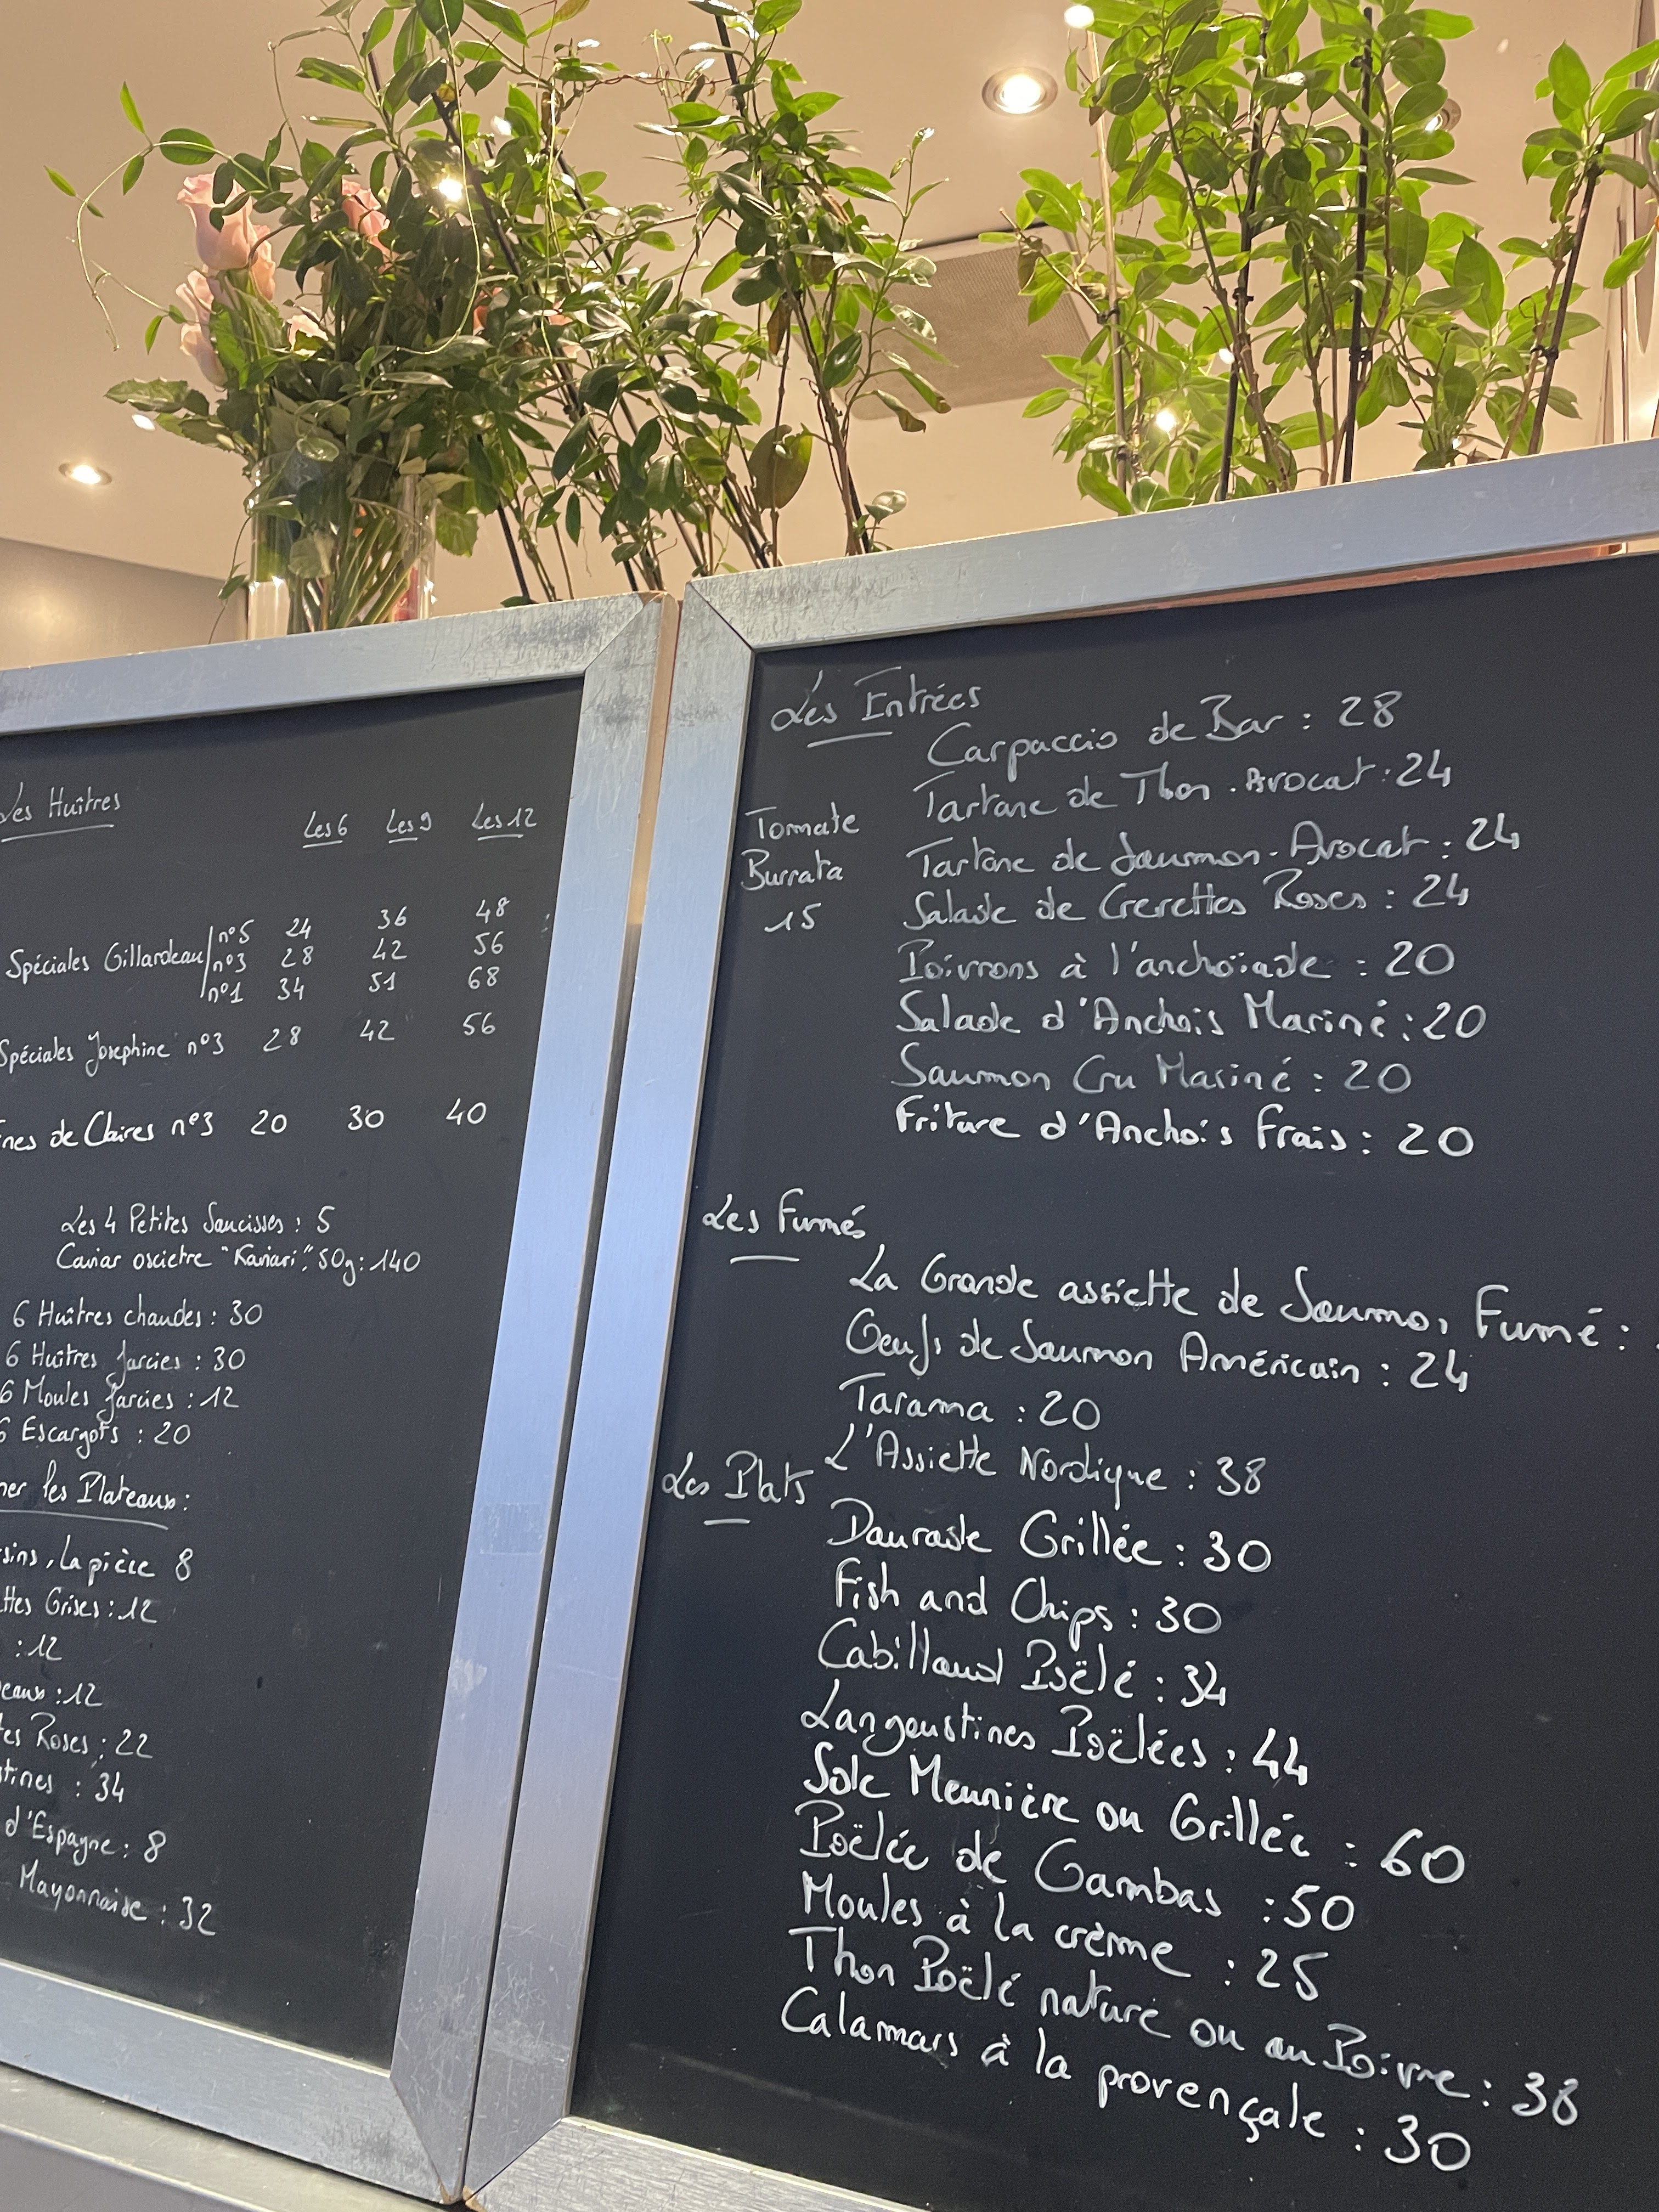 Les Huîtres
Les 6 Les 9 Les 12
Spéciales Gillardeau n°5 24 36 48
n°3 28 42 56
n°1 34 51 68
Spéciales Josephine n°3 28 42 56
de Claires n°3 20 30 40
Les 4 Petites Saucisses : 5
Caviar oscietre "Kaviari", 50g : 140
6 Huîtres chaudes : 30
6 Huîtres farcies : 30
6 Moules farcies : 12
6 Escargots : 20
les Plateaux :
La pièce 8
Grises : 12
: 12
: 12
Roses : 22
: 34
d'Espagne : 8
Mayonnaise : 32
Les Entrées
Tomate
Burrata
15
Carpaccio de Bar : 28
Tartare de Thon . Avocat : 24
Tartare de Saumon . Avocat : 24
Salade de Crevettes Roses : 24
Poivrons à l'anchoïade : 20
Salade d'Anchois Mariné : 20
Saumon Cru Mariné : 20
Friture d'Anchois Frais : 20
Les Fumés
La Grande assiette de Saumon Fumé :
Oeufs de Saumon Américain : 24
Tarama : 20
L'Assiette Nordique : 38
Les Plats
Daurade Grillée : 30
Fish and Chips : 30
Cabillaud Poëlé : 34
Langoustines Poëlées : 44
Sole Meunière ou Grillée : 60
Poëlée de Gambas : 50
Moules à la crème : 25
Thon Poëlé nature ou au Poivre : 38
Calamars à la provençale : 30